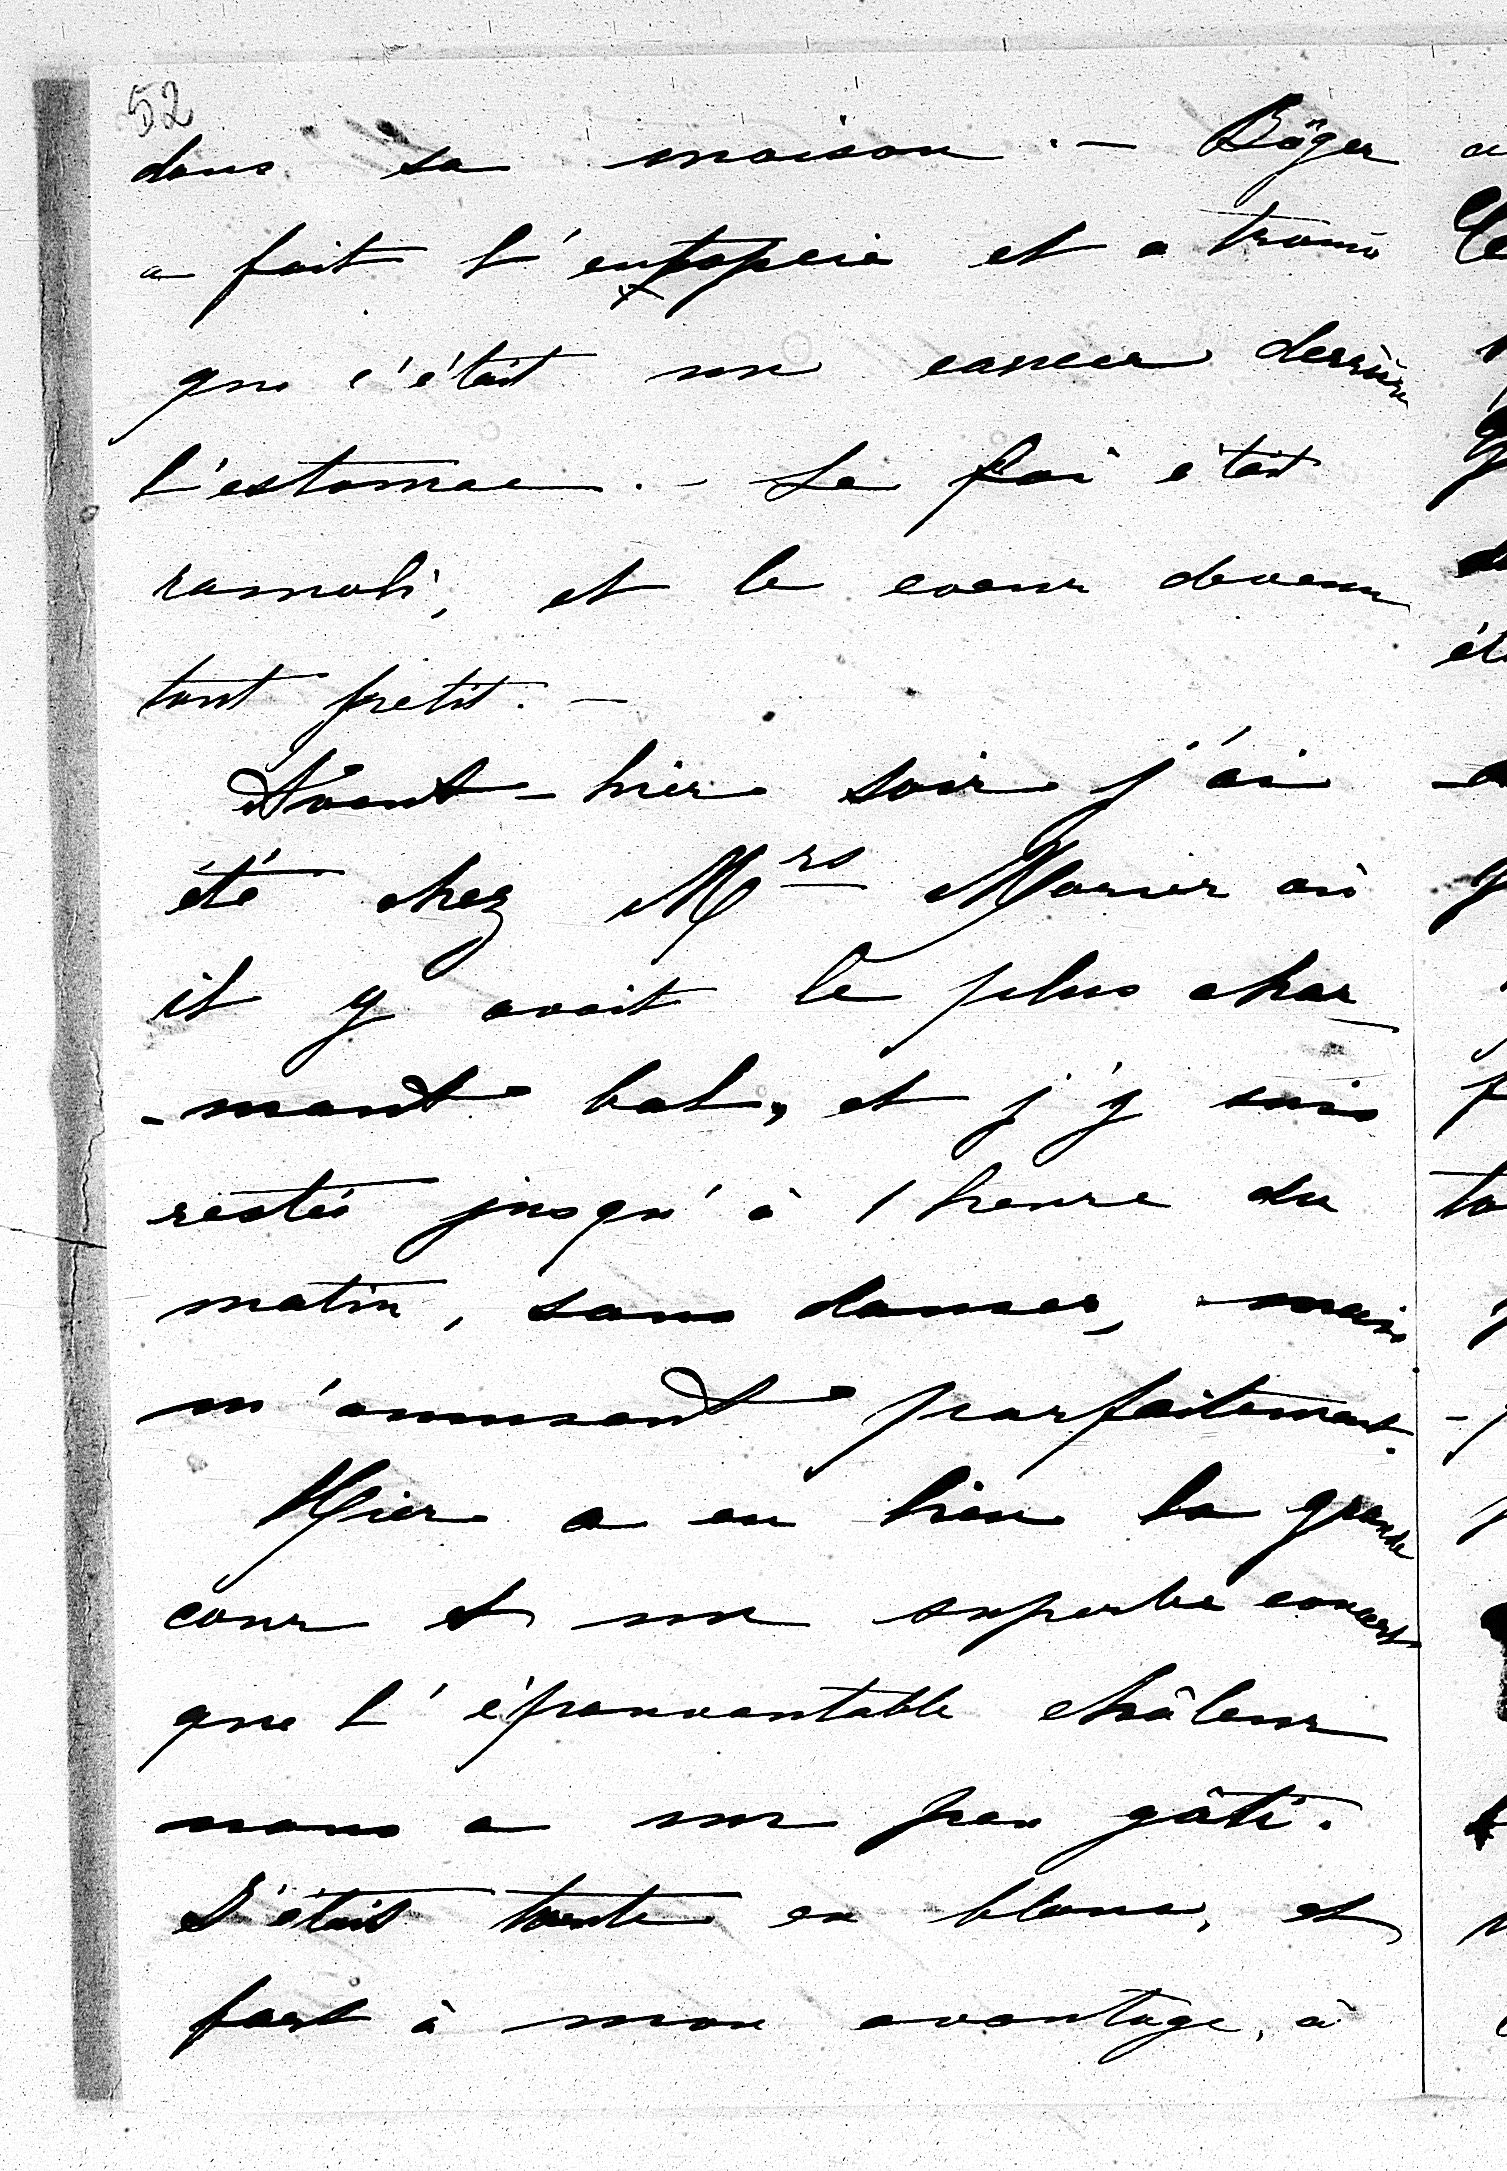 52
dans sa maison. — Böger
a fait l'autopsie et a trouvé
que c'était un cancer derrière
l'estomac. — Le foi était
ramoli, et le coeur devenu
tout petit. —
Avant-hier soir j'ai
été chez Mrs Morier où
il y avait le plus char-
-mant bal, et j'y suis
restée jusqu'à 1 heure du
matin, sans danser, mais
m'amusant parfaitement.
Hier a eu lieu la grande
cour et un superbe concert
que l'épouvantable châleur
nous a un peu gâté.
J'étais toute en blanc, et
fort à mon avantage, à